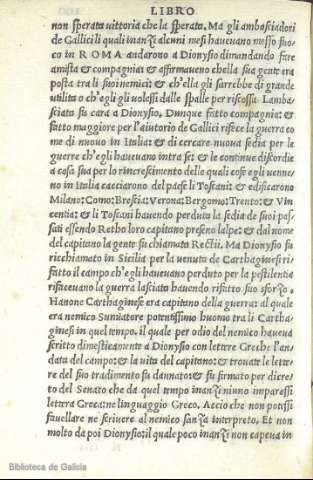 LIBRO
non sperata vittoria che la sperata. Ma gli ambasciadori
de Gallici li quali inanzi alcuni mesi haueuano messo fuo-
co in ROMA andarono a Dionysio dimandando fare
amista & compagnia: & affirmaueno che la sua gente era
posta tra li suoi nemici: & ch'ella gli sarrebbe di grande
utilita o ch'egli gli uolessi dalle spalle per riscossa Lamba-
sciata fu cara a Dionysio. Dunque fatto compagnia: &
fatto maggiore per l'aiutorio de Gallici rifece la guerra co
me di nuouo in Italia: & di cercare nuoua sedia per le
guerre ch'egli haueuano intra se: & le continue discordie
a casa sua per lo rincrescimento delle quali cose egli uenne-
no in Italia cacciarono del paese li Toscani: & edificarono
Milano: Como: Brescia: Verona: Bergomo: Trento: & Vin
centia: & li Toscani hauendo perduta la sedia de suoi pas-
sati essendo Retho loro capitano preseno lalpe: & dal nome
del capitano la gente fu chiamata Retii. Ma Dionysio fu
ricchiamato in Sicilia per la uenuta de Carthaginesi ri-
fatto il campo ch'egli haueuano perduto per la pestilentia
rifaceuano la guerra lasciata hauendo rifatto suo sforzo.
Hanone Carthaginese era capitano della guerra: al quale
era nemico Suniatore potentissimo huomo tra li Cartha-
ginesi in quel tempo. il quale per odio del nemico haueua
scritto dimesticamente a Dionysio con lettere Greche l'an-
data del campo: & la uita del capitano: & trouate le lette-
re del suo tradimento fu dannato: & fu firmato per dicre-
to del Senato che da quel tempo inanzi niuno imparassi
lettera Greca: ne linguaggio Greco. Accio che non potissi
fauellare ne scriuere al nemico sanza interpreto. Et non
molto da poi Dionysio: il quale poco inanzi non capeua in
Biblioteca de Galicia